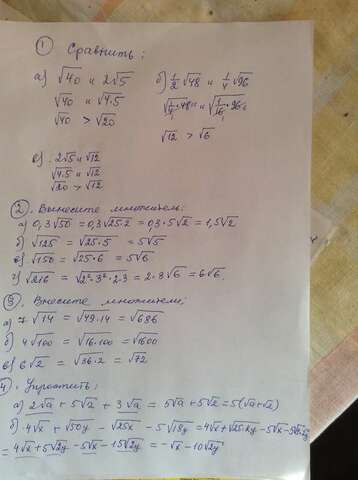 1 Сравнить:
а) √40 и 2√5 б) 1/2 √48 и 1/4 √96
√40 и √4·5 √1/4·48 и √1/16·96
√40 > √20 √12 > √6
в) 2√5 и √12
√4·5 и √12
√20 > √12
2. Вынесите множитель:
а) 0,3√50 = 0,3√25·2 = 0,3·5√2 = 1,5√2
б) √125 = √25·5 = 5√5
в) √150 = √25·6 = 5√6
г) √216 = √2²·3²·2·3 = 2·3√6 = 6√6
3. Внесите множитель:
а) 7√14 = √49·14 = √686
б) 4√100 = √16·100 = √1600
в) 6√2 = √36·2 = √72
4. Упростить:
а) 2√a + 5√2 + 3√a = 5√a + 5√2 = 5(√a+√2)
б) 4√x + √50y − √25x − 5√18y = 4√x + √25·2y − 5√x − 5√9·2y
= 4√x + 5√2y − 5√x − 15√2y = −√x − 10√2y